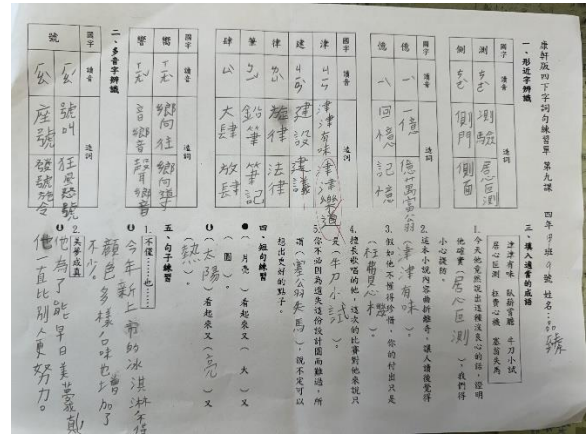 康軒版四下字詞句練習單 第九課
一、形近字辨識
國字 讀音 造詞
測 ㄘㄜˋ 測驗 居心叵測
側 ㄘㄜˋ 側門 側面
國字 讀音 造詞
億 ㄧˋ 一億 億萬富翁
憶 ㄧˋ 回憶 記憶
國字 讀音 造詞
津 ㄐㄧㄣ 津津有味 津津樂道
建 ㄐㄧㄢˋ 建設 建議
律 ㄌㄩˋ 旋律 法律
筆 ㄅㄧˇ 鉛筆 筆記
肆 ㄙˋ 大肆 放肆
國字 讀音 造詞
嚮 ㄒㄧㄤˋ 嚮往 嚮導
響 ㄒㄧㄤˇ 音響 聲響
二、多音字辨識
國字 讀音 造詞
號 ㄏㄠˊ 號叫 狂風怒號
ㄏㄠˋ 座號 發號施令
四年 班 號 姓名:
三、填入適當的成語
津津有味 臥薪嘗膽 牛刀小試
居心叵測 枉費心機 塞翁失馬
1.今天他竟然說出這種沒良心的話,證明
他確實(居心叵測),我們得
小心提防。
2.這本小說內容曲折離奇,讓人讀後覺得
(津津有味)。
3.假如他不懂得珍惜,你的付出只是
(枉費心機)。
4.擅長歌唱的她,這次的比賽對他來說只
是(牛刀小試)。
5.你不必因為遺失這份設計圖而難過,所
謂(塞翁失馬),說不定可以
想出更好的點子。
四、短句練習
●(月亮)看起來又(大)又
(圓)。
(太陽)看起來又(亮)又
(熱)。
五、句子練習
1.不僅……也……
今年新上市的冰淇淋不僅
顏色多樣口味也增加了
不少。
2.美夢成真
他為了能早日美夢成真
他一直比別人更努力。